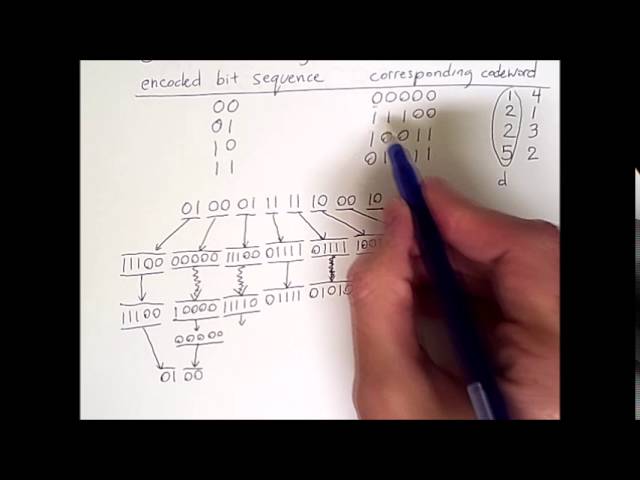 encoded bit sequence corresponding codeword
00 00000 1 4
01 11100 2 1
10 10011 2 3
11 5 2
d
01 00 01 11 11 10 00 10
11100 00000 11100 01111 01111
11100 10000 11110 01111
00000
01 00